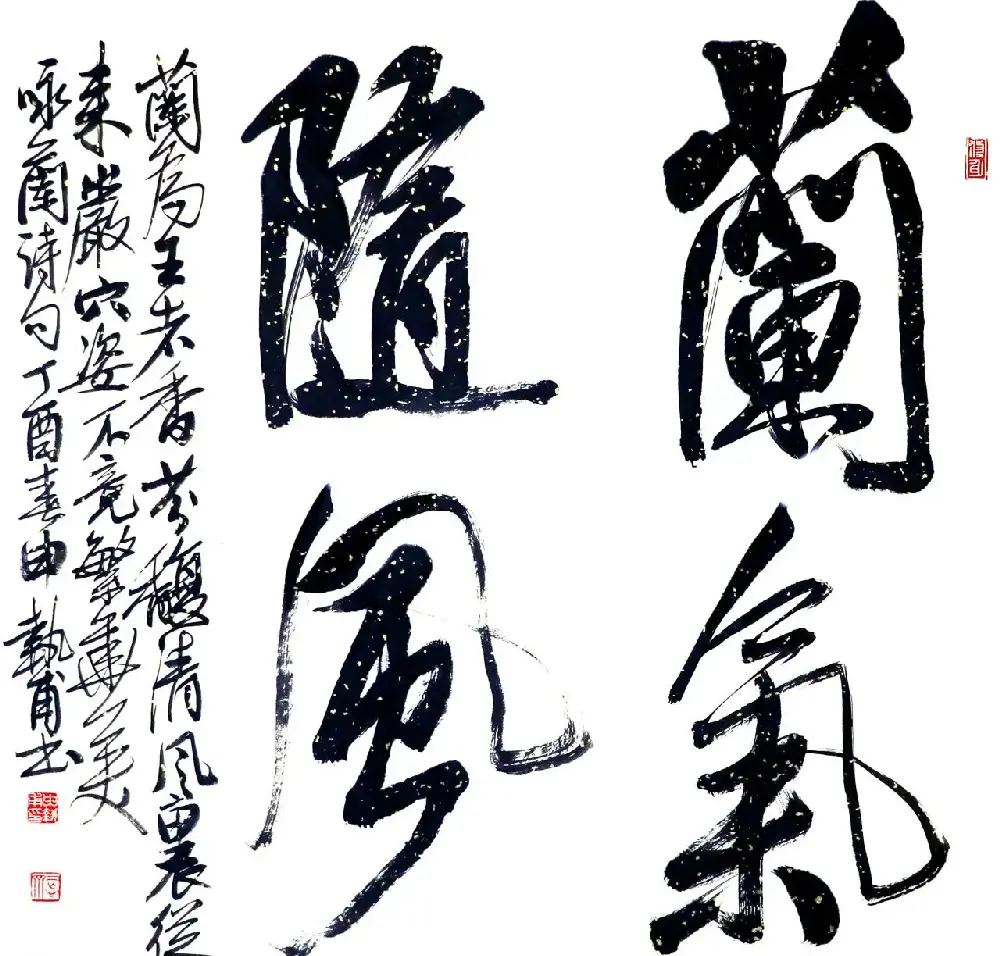 蘭氣
隨風
蘭為王者香芬馥清風裏從
來巖穴姿不竟繁華美
咏蘭诗句丁酉春申執甫书